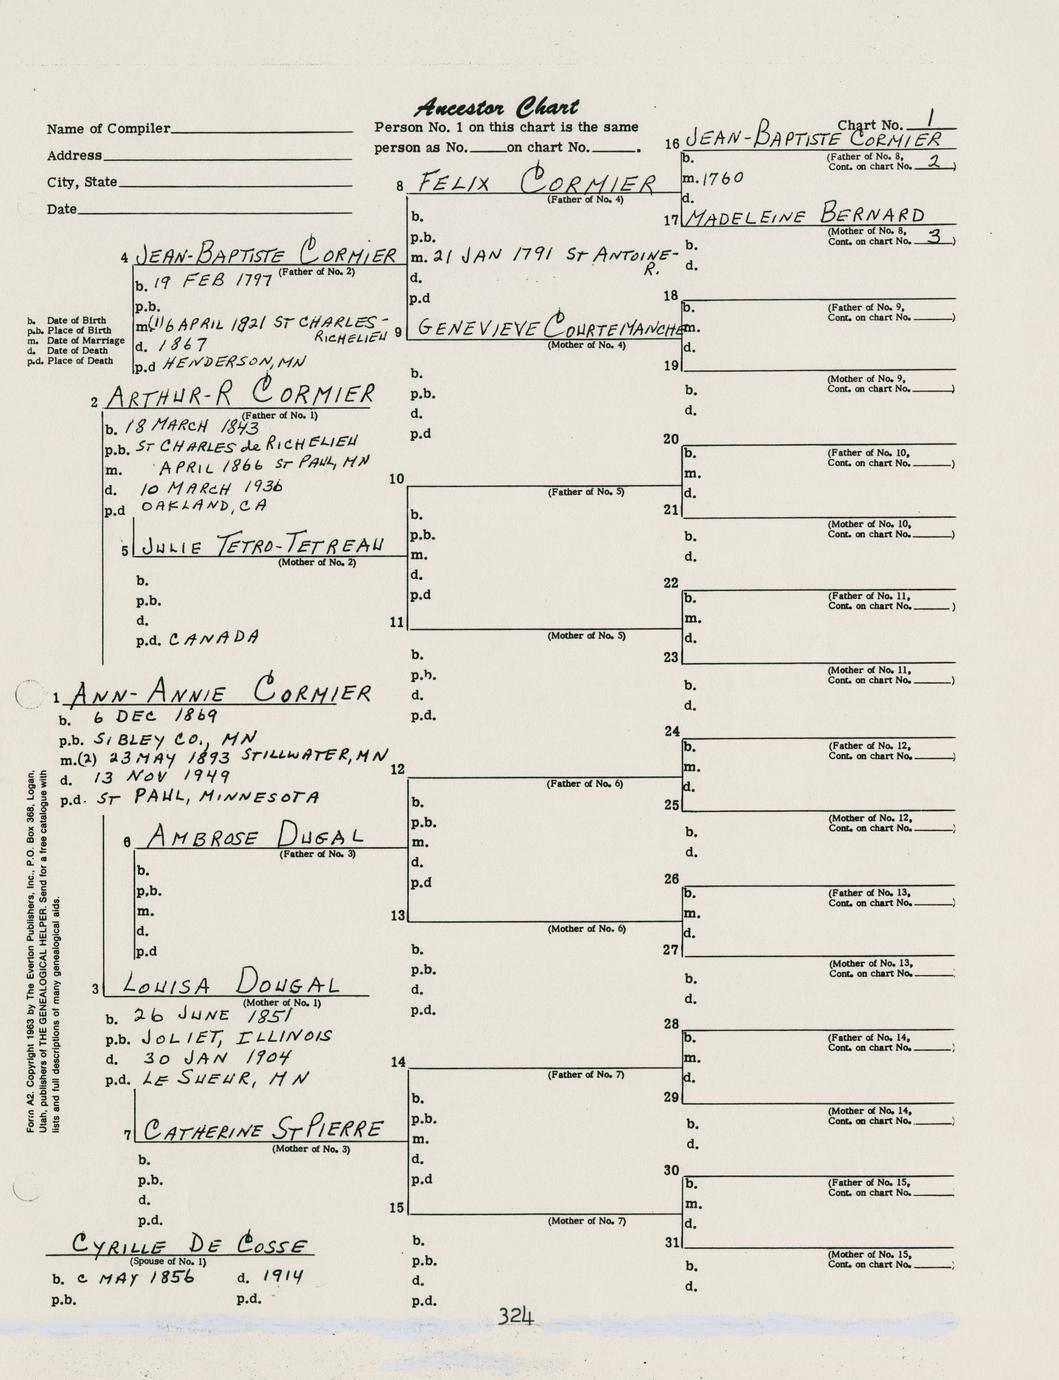 Ancestor Chart
Name of Compiler
Address
City, State
Date
Person No. 1 on this chart is the same
person as No. on chart No. .
Chart No. 1
16 JEAN-BAPTISTE CORMIER
b. (Father of No. 8,
Cont. on chart No. 2)
m. 1760
d.
8 FELIX CORMIER
(Father of No. 4)
b.
p.b.
m. 21 JAN 1791 ST ANTOINE-
R.
d.
p.d
17 MADELEINE BERNARD
(Mother of No. 8,
b. Cont. on chart No. 3)
d.
4 JEAN-BAPTISTE CORMIER
(Father of No. 2)
b. 19 FEB 1797
p.b.
m.(1) 16 APRIL 1821 ST CHARLES-
RICHELIEU
d. 1867
p.d HENDERSON, MN
b. Date of Birth
p.b. Place of Birth
m. Date of Marriage
d. Date of Death
p.d. Place of Death
9 GENEVIEVE COURTEMANCHE
(Mother of No. 4)
b.
p.b.
d.
p.d
18
b. (Father of No. 9,
Cont. on chart No. )
m.
d.
19
(Mother of No. 9,
b. Cont. on chart No. )
d.
2 ARTHUR-R CORMIER
(Father of No. 1)
b. 18 MARCH 1843
p.b. ST CHARLES de RICHELIEU
m. APRIL 1866 ST PAUL, MN
d. 10 MARCH 1936
p.d OAKLAND, CA
20
b. (Father of No. 10,
Cont. on chart No. )
m.
d.
10
(Father of No. 5)
b.
p.b.
m.
d.
p.d
21
(Mother of No. 10,
b. Cont. on chart No. )
d.
5 JULIE TETRO-TETREAU
(Mother of No. 2)
b.
p.b.
d.
p.d. CANADA
22
b. (Father of No. 11,
Cont. on chart No. )
m.
d.
11
(Mother of No. 5)
b.
p.b.
d.
p.d.
23
(Mother of No. 11,
b. Cont. on chart No. )
d.
1 ANN-ANNIE CORMIER
b. 6 DEC 1869
p.b. SIBLEY CO., MN
m.(2) 23 MAY 1893 STILLWATER, MN
d. 13 NOV 1949
p.d. ST PAUL, MINNESOTA
24
b. (Father of No. 12,
Cont. on chart No. )
m.
d.
12
(Father of No. 6)
b.
p.b.
m.
d.
p.d
25
(Mother of No. 12,
b. Cont. on chart No. )
d.
6 AMBROSE DUGAL
(Father of No. 3)
b.
p.b.
m.
d.
p.d
26
b. (Father of No. 13,
Cont. on chart No. )
m.
d.
13
(Mother of No. 6)
b.
p.b.
d.
p.d.
27
(Mother of No. 13,
b. Cont. on chart No. )
d.
3 LOUISA DOUGAL
(Mother of No. 1)
b. 26 JUNE 1851
p.b. JOLIET, ILLINOIS
d. 30 JAN 1904
p.d. LE SUEUR, MN
28
b. (Father of No. 14,
Cont. on chart No. )
m.
d.
14
(Father of No. 7)
b.
p.b.
m.
d.
p.d
29
(Mother of No. 14,
b. Cont. on chart No. )
d.
7 CATHERINE ST PIERRE
(Mother of No. 3)
b.
p.b.
d.
p.d.
30
b. (Father of No. 15,
Cont. on chart No. )
m.
d.
15
(Mother of No. 7)
b.
p.b.
d.
p.d.
31
(Mother of No. 15,
b. Cont. on chart No. )
d.
CYRILLE DE COSSE
(Spouse of No. 1)
b. c MAY 1856 d. 1914
p.b. p.d.
Form A2. Copyright 1963 by The Everton Publishers, Inc., P.O. Box 368, Logan,
Utah, publishers of THE GENEALOGICAL HELPER. Send for a free catalogue with
lists and full descriptions of many genealogical aids.
324